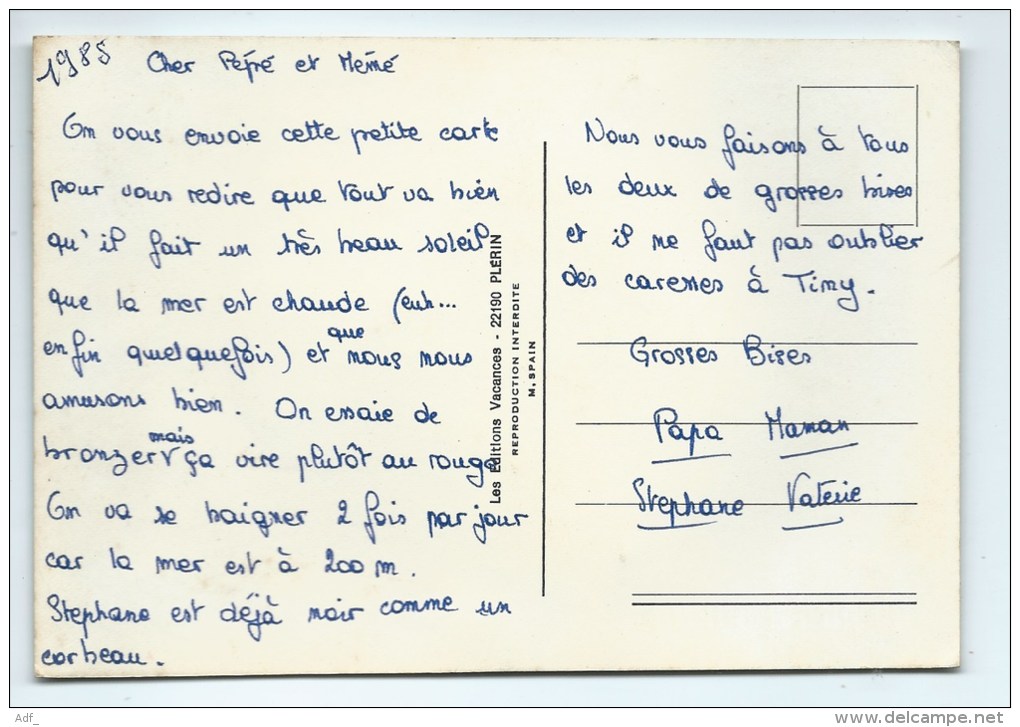 1985
Cher Pépé et Mémé
On vous envoie cette petite carte
pour vous redire que tout va bien
qu'il fait un très beau soleil
que la mer est chaude (euh...
enfin quelquefois) et que nous nous
amusons bien. On essaie de
bronzer mais ça vire plutôt au rouge
On va se baigner 2 fois par jour
car la mer est à 200 m.
Stephane est déjà noir comme un
corbeau.
Les Editions Vacances - 22190 PLÉRIN
REPRODUCTION INTERDITE
M. SPAIN
Nous vous faisons à tous
les deux de grosses bises
et il ne faut pas oublier
des caresses à Timy.
Grosses Bises
Papa Maman
Stephane Valérie
Adf_
www.delcampe.net